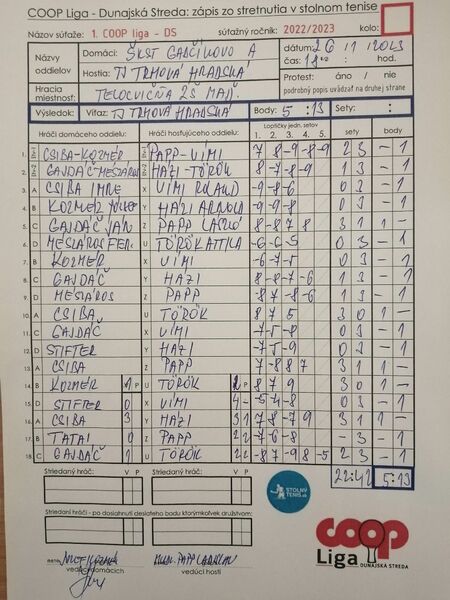 COOP Liga - Dunajská Streda: zápis zo stretnutia v stolnom tenise
Názov súťaže: 1. COOP liga - DS súťažný ročník: 2022/2023 kolo:
Názvy oddielov Domáci: ŠKST GABČÍKOVO A dátum: 26 /1 /2023
Hostia: TJ TRHOVÁ HRADSKÁ čas: 18 hod.
Hracia miestnosť: TELOCVIČŇA ZŠ MAĎ. Protest: áno / nie
podrobný popis uvádzať na druhej strane
Výsledok: Víťaz: TJ TRHOVÁ HRADSKÁ Body: 5 :13 Sety: :
Hráči domáceho oddielu: Hráči hosťujúceho oddielu: Loptičky jedn. setov sety body
1. 2. 3. 4. 5.
1. CSIBA-KOZMÉR PAPP-VIMI 7 8 -9 -8 -9 2 3 - 1
2. GAJDÁČ-MESZÁROS HÁZI-TÖRÖK 8 -7 -8 -9 1 3 - 1
3. A CSIBA IMRE X VIMI ROLAND -9 -8 -6 0 3 - 1
4. B KOZMÉR Y HÁZI ARNOLD -9 -9 -8 0 3 - 1
5. C GAJDÁČ JÁN Z PAPP LÁSZLÓ 8 -8 7 8 3 1 1 -
6. D MESZÁROS FER. U TÖRÖK ATTILA -6 -6 -5 0 3 - 1
7. B KOZMÉR X VIMI -6 -7 -5 0 3 - 1
8. C GAJDÁČ Y HÁZI 8 -8 -7 -6 1 3 - 1
9. D MESZÁROS Z PAPP -8 7 -8 -6 1 3 - 1
10. A CSIBA U TÖRÖK 8 7 5 3 0 1 -
11. C GAJDÁČ X VIMI -7 -5 -8 0 3 - 1
12. D STIFTER Y HÁZI -7 -5 -9 0 3 - 1
13. A CSIBA Z PAPP 7 -8 8 7 3 1 1 -
14. B KOZMÉR 1 P U TÖRÖK 2 P 8 7 9 3 0 1 -
15. D STIFTER 0 X VIMI 4 -5 -4 -8 0 3 - 1
16. A CSIBA 3 Y HÁZI 3 1 8 -7 9 3 1 1 -
17. B TATAI 0 Z PAPP 2 2 -7 -6 -8 - 3 - 1
18. C GAJDÁČ 1 U TÖRÖK 2 2 -8 7 -9 8 -5 2 3 - 1
Striedaný hráč: V P Striedaný hráč: V P
22:42 5:13
STOLNÝ TENIS.sk
Striedaní hráči - po dosiahnutí desiateho bodu ktorýmkoľvek družstvom:
V P V P
coop
Liga DUNAJSKÁ STREDA
vedúci domácich vedúci hostí